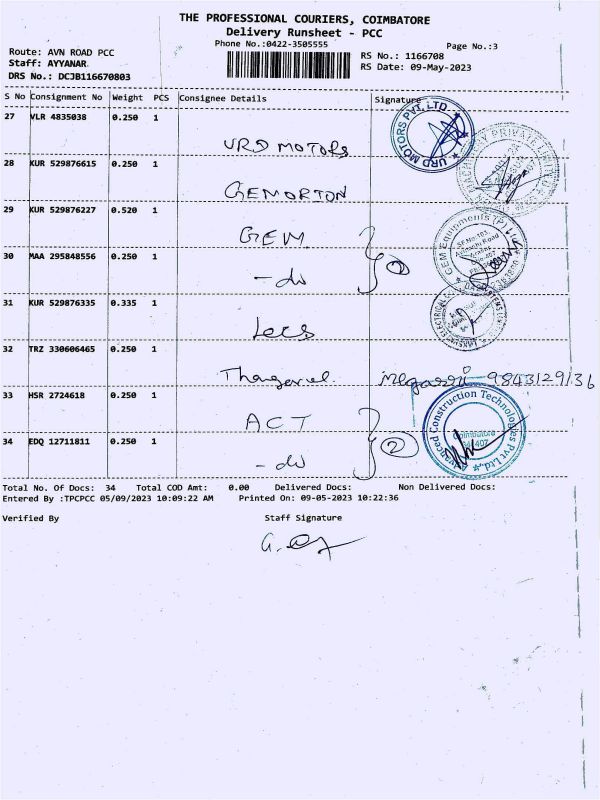 THE PROFESSIONAL COURIERS, COIMBATORE
Delivery Runsheet - PCC
Phone No.:0422-3505555
Page No.:3
Route: AVN ROAD PCC
Staff: AYYANAR
DRS No.: DCJB116670803
RS No.: 1166708
RS Date: 09-May-2023
S No Consignment No Weight PCS Consignee Details Signature
27 VLR 4835038 0.250 1
URD MOTORS
URD MOTORS PVT. LTD.
28 KUR 529876615 0.250 1
GEMORTON
29 KUR 529876227 0.520 1
GEM
GEM Equipments (P)
30 MAA 295848556 0.250 1
- do
1
31 KUR 529876335 0.335 1
Lecs
32 TRZ 330606465 0.250 1
9843129136
33 HSR 2724618 0.250 1
ACT
Advanced Construction Technologies Pvt Ltd.
Coimbatore
34 EDQ 12711811 0.250 1
- do
2
Total No. Of Docs: 34 Total COD Amt: 0.00 Delivered Docs: Non Delivered Docs:
Entered By :TPCPCC 05/09/2023 10:09:22 AM Printed On: 09-05-2023 10:22:36
Verified By Staff Signature